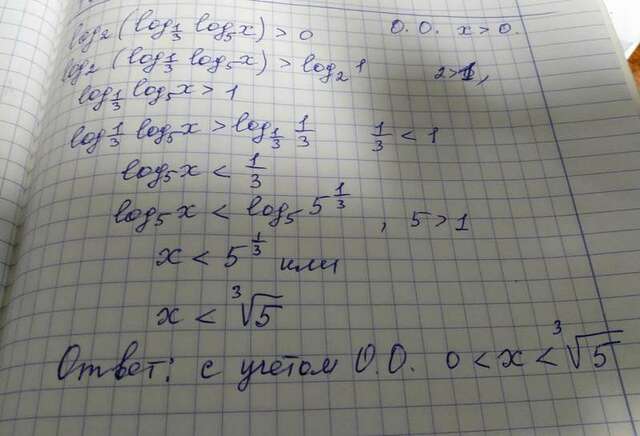 log₂(log_{1/3} log₅x) > 0 О.О. x > 0.
log₂(log_{1/3} log₅x) > log₂1 2>1,
log_{1/3} log₅x > 1
log_{1/3} log₅x > log_{1/3} 1/3 1/3 < 1
log₅x < 1/3
log₅x < log₅5^{1/3}, 5 > 1
x < 5^{1/3} или
x < ∛5
Ответ: с учётом О.О. 0 < x < ∛5